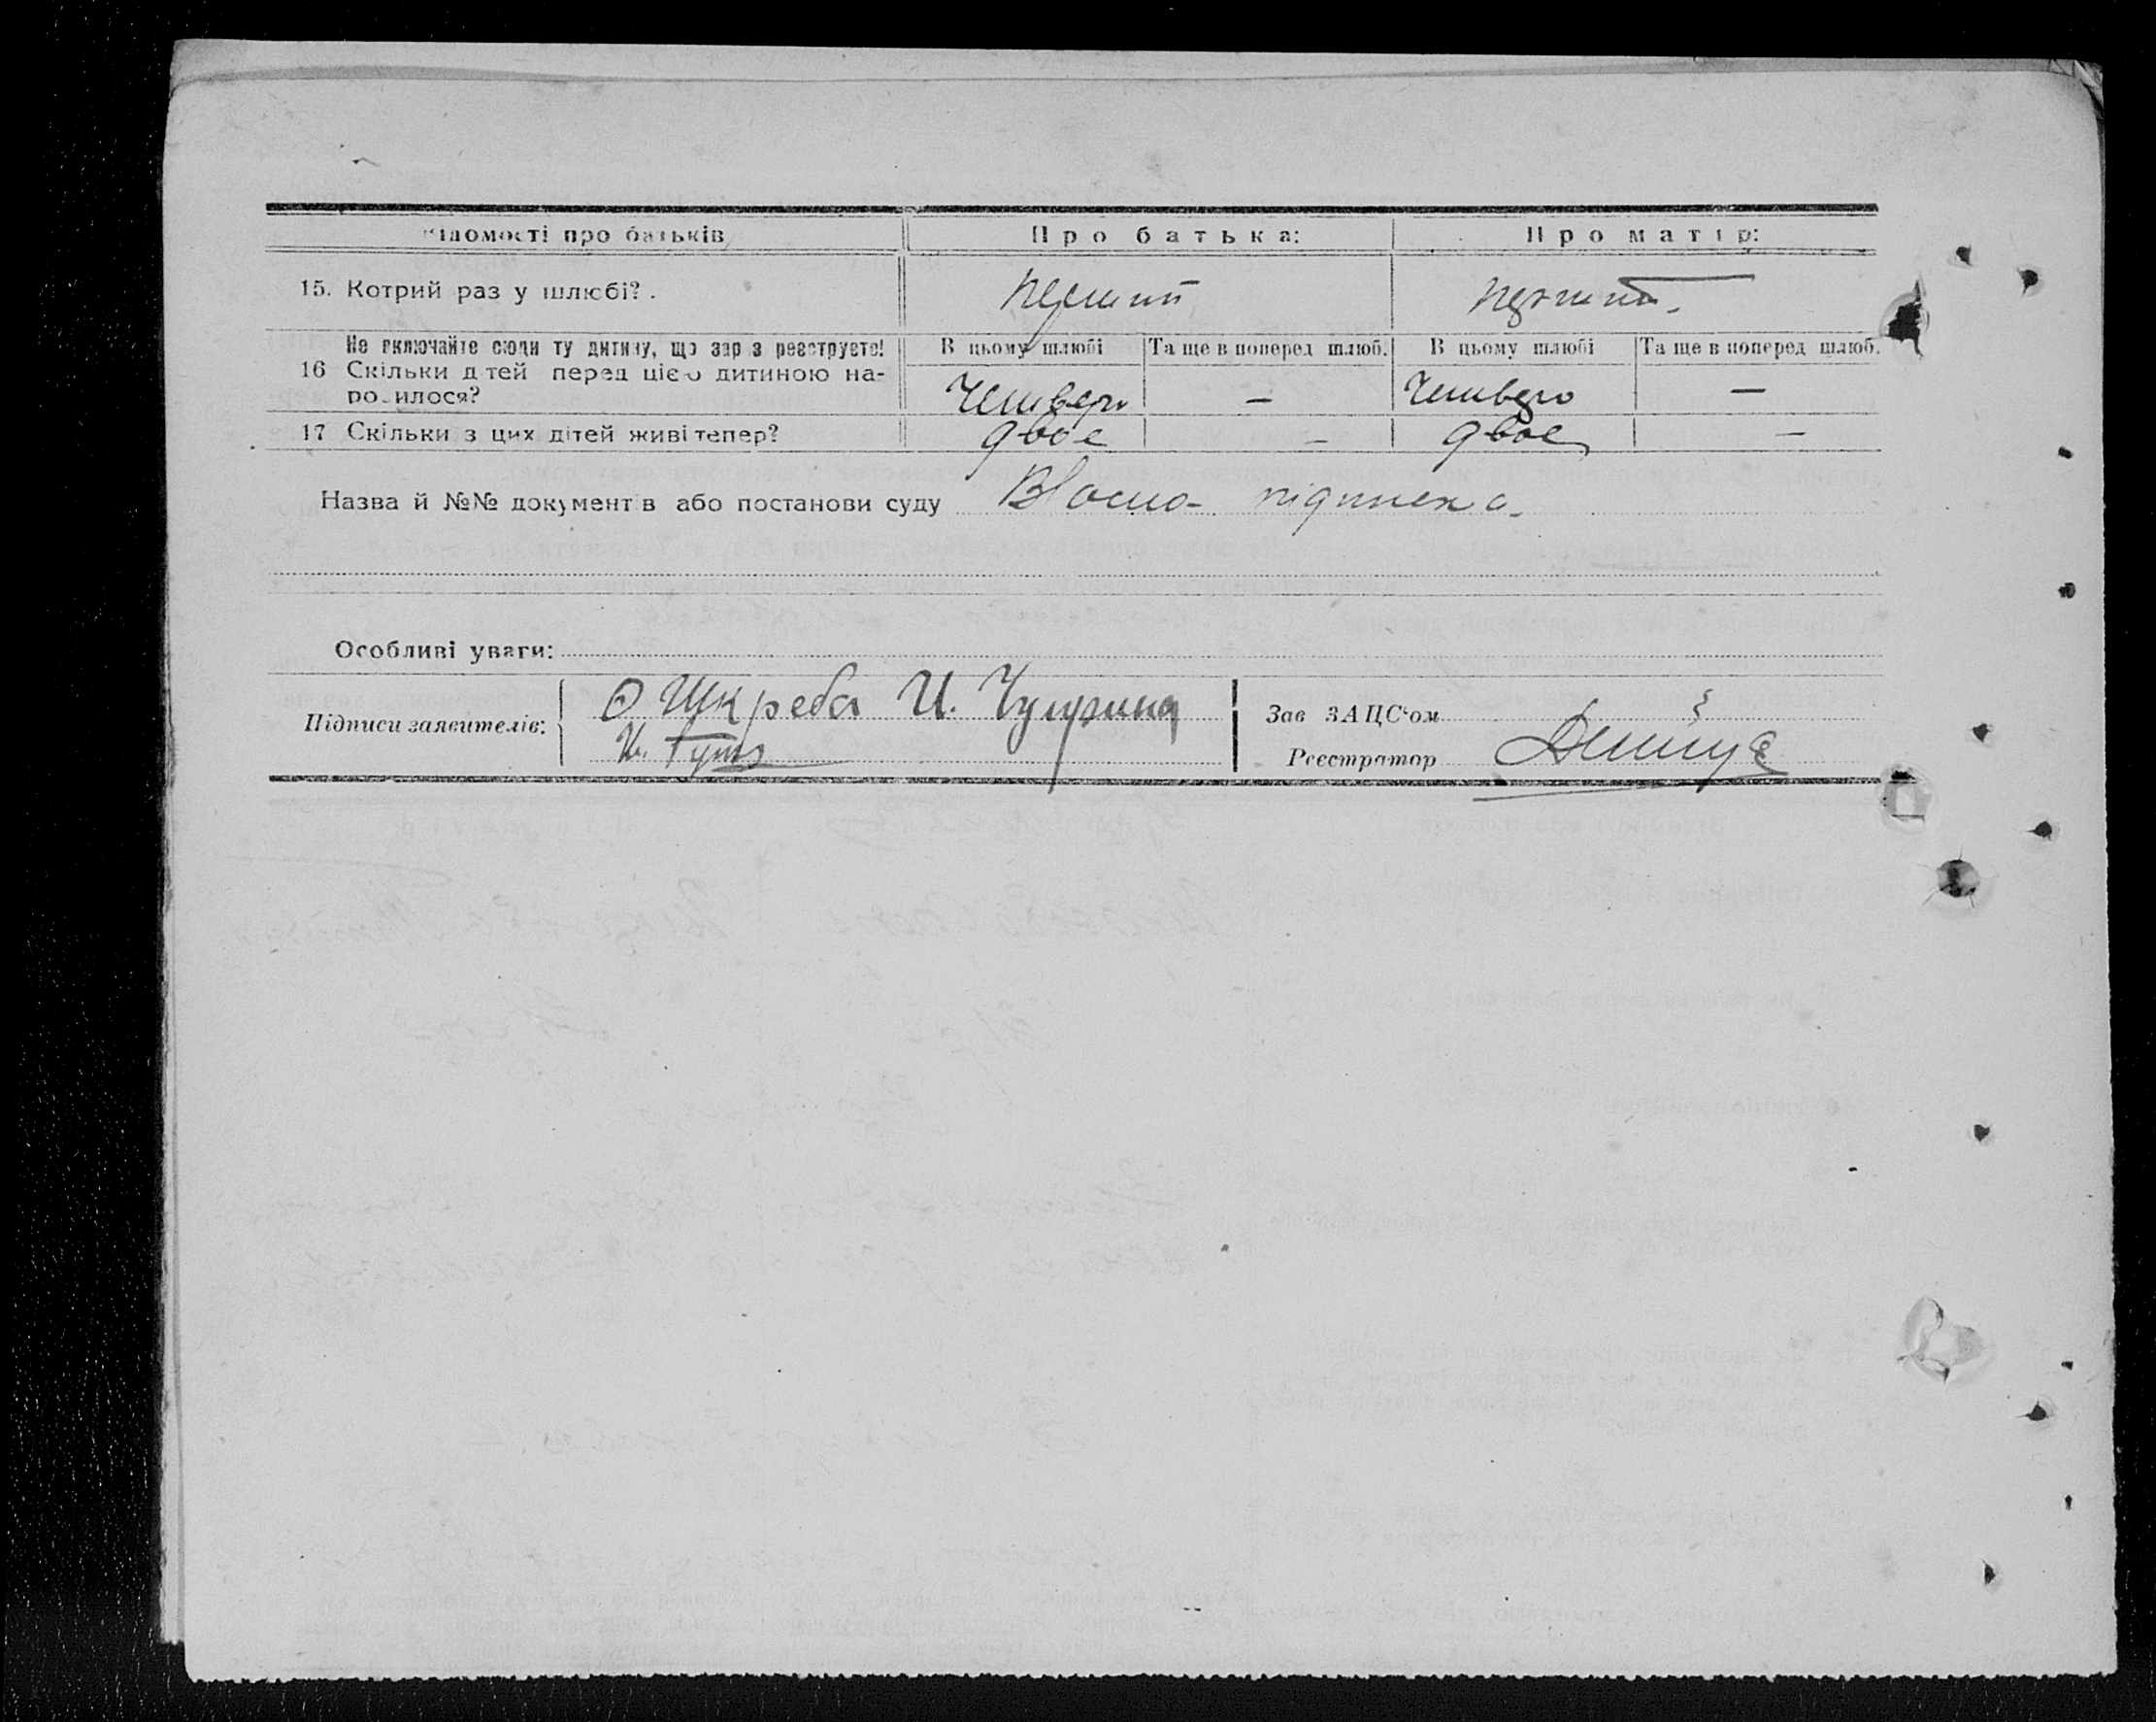 відомості про батьків Про батька: Про матір:
15. Котрий раз у шлюбі? . перший перший.
Не включайте сюди ту дитину, що зараз реєструєте! В цьому шлюбі Та ще в поперед шлюб. В цьому шлюбі Та ще в поперед шлюб.
16 Скільки дітей перед цією дитиною на-
родилося? Четверо — Четверо —
17 Скільки з цих дітей живі тепер? двоє — двоє —
Назва й №№ документів або постанови суду підписка
Особливі уваги:
Підписи заявителів: О Шкреба И.
И. Гут
Зав ЗАЦС'ом
Реєстратор